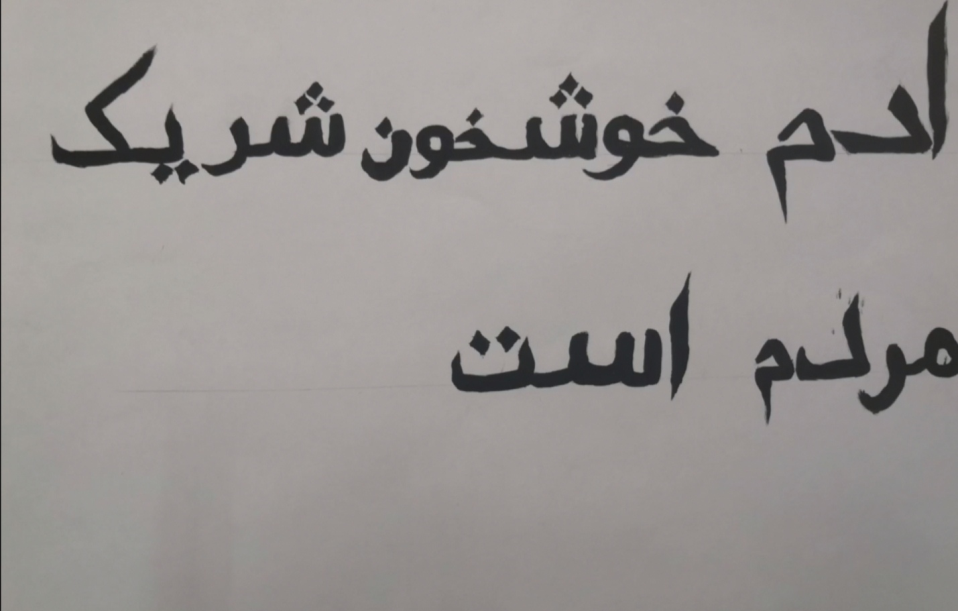 ادم خوشخون شریک
مردم است